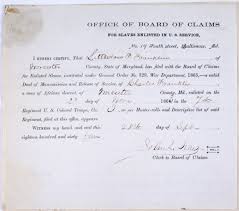 OFFICE OF BOARD OF CLAIMS
FOR SLAVES ENLISTED IN U.S. SERVICE,
No. 19 South street, Baltimore, Md.
I HEREBY CERTIFY, That Littleton P. Franklin
of Worcester County, State of Maryland, has filed with the Board of Claims
for Enlisted Slaves, instituted under General Order No. 329, War Department, 1863, a valid
Deed of Manumission and Release of Service of Charles Franklin
a man of African descent, of Worcester County, Md. enlisted on the
day of 186 in the 7th
Regiment U. S. Colored Troops, Co. as per Muster-rolls and Descriptive list of said
Regiment, filed at this office, this
Witness my hand and seal this 28th day of Sept
eighteen hundred and sixty
Clerk to Board of Claims